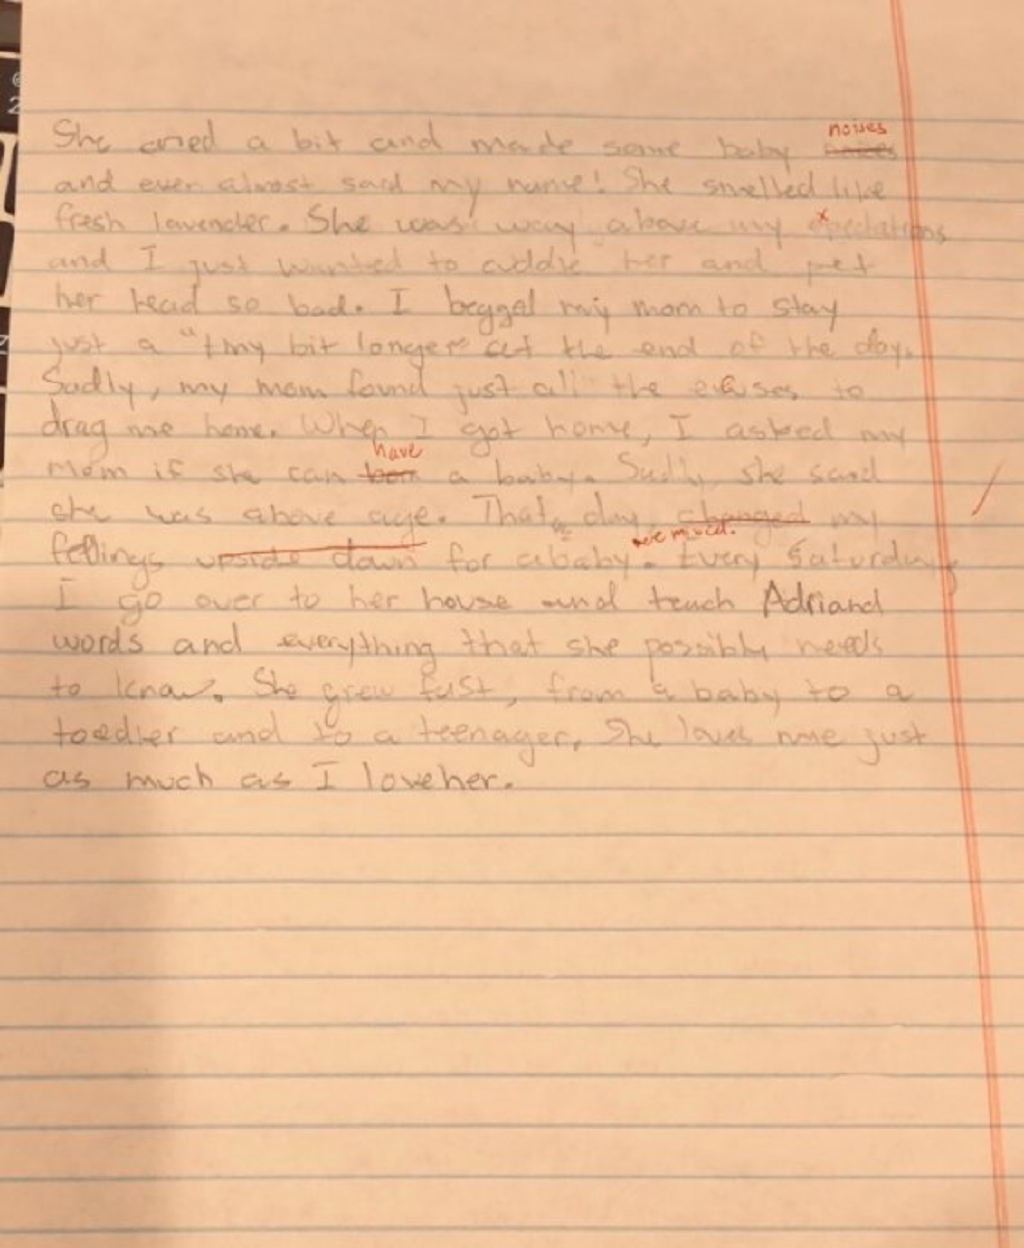 She cried a bit and made some baby noises
and even almost said my name! She smelled like
fresh lavender. She was way above my expectations
and I just wanted to cuddle her and pet
her head so bad. I begged my mom to stay
just a "tiny bit longer" at the end of the day.
Sadly, my mom found just all the excuses to
drag me home. When I got home, I asked my
mom if she can have a baby. Sadly, she said
she was above age. That day changed my
feelings upside down for a baby. Every Saturday,
I go over to her house and teach Adriand
words and everything that she possibly needs
to know. She grew fast, from a baby to a
toedler and to a teenager. She loves me just
as much as I love her.